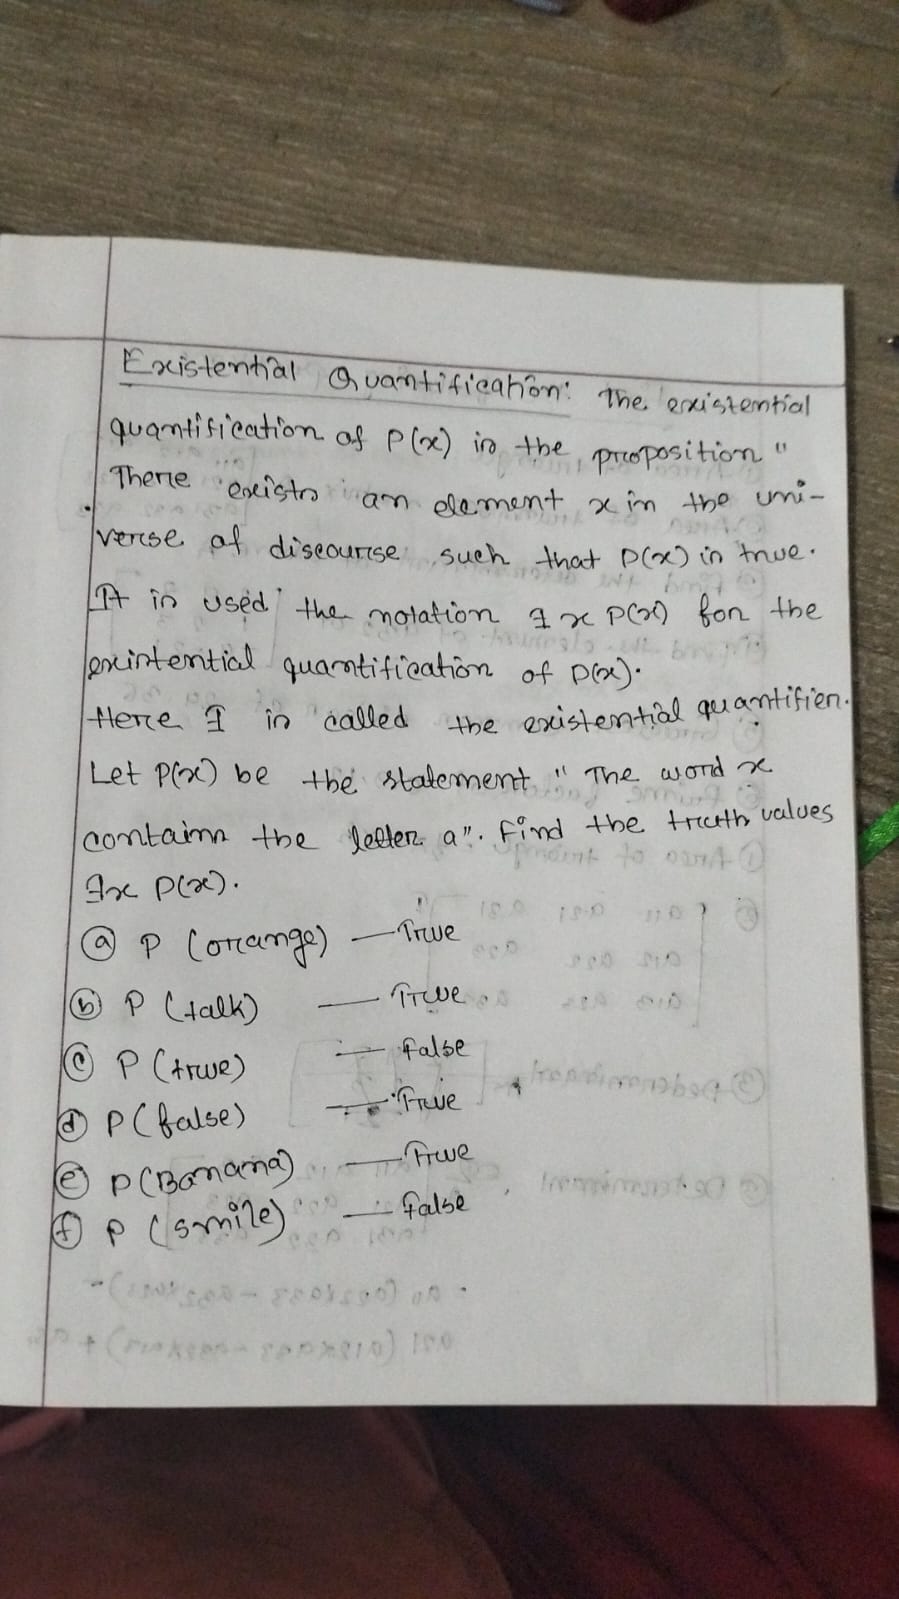 Existential Quantification: The existential
quantification of P(x) is the proposition "
There exists an element x in the uni-
verse of discourse such that P(x) is true.
It is used the notation ∃x P(x) for the
existential quantification of P(x).
Here ∃ is called the existential quantifier.
Let P(x) be the statement " The word x
contains the letter a". Find the truth values
∃x P(x).
ⓐ P (orange) — True
ⓑ P (talk) — True
ⓒ P (true) — false
ⓓ P (false) — True
ⓔ P (Banana) — True
ⓕ P (smile) — false